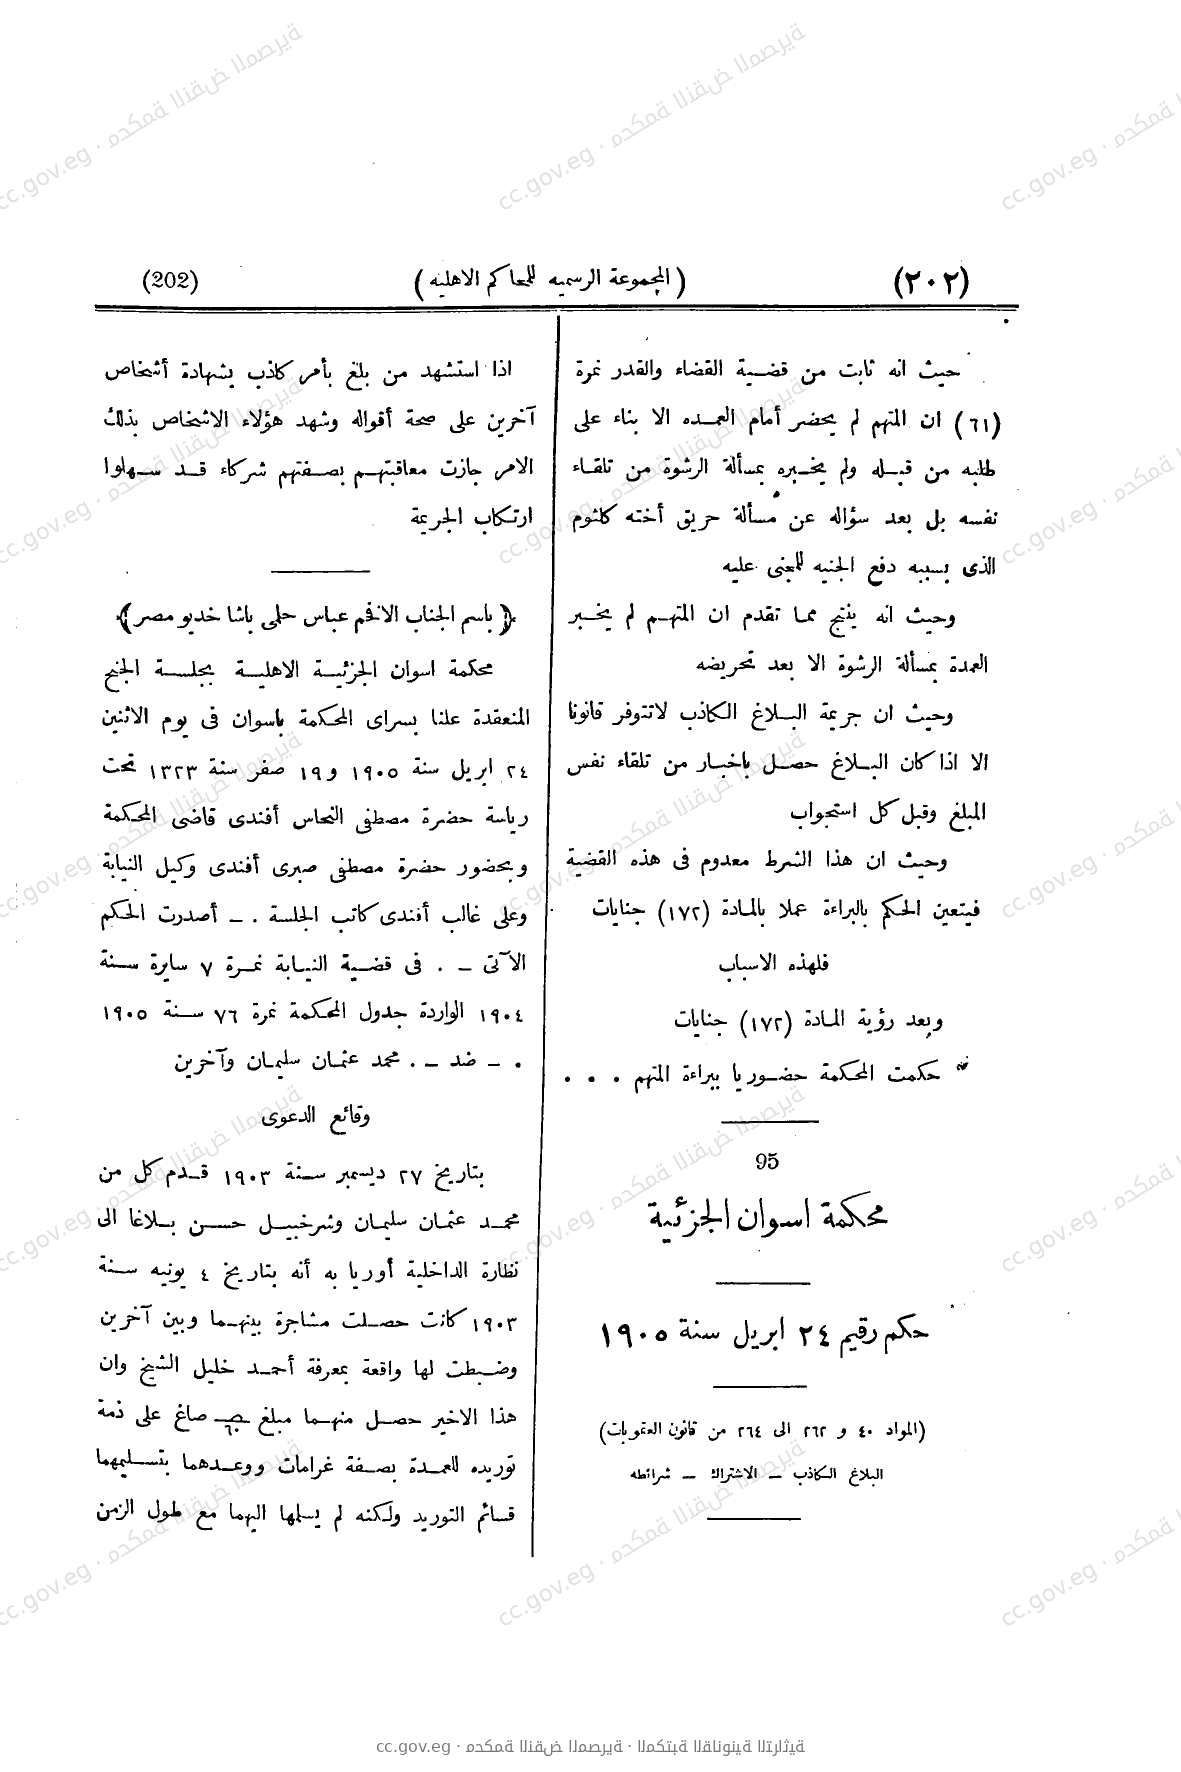 (٢٠٢) (المجموعة الرسميه للمحاكم الاهليه) (202)
حيث انه ثابت من قضية القضاء والقدر نمرة
(٦١) ان المتهم لم يحضر أمام العمده الا بناء على
طلبه من قبله ولم يخبره بمسألة الرشوة من تلقاء
نفسه بل بعد سؤاله عن مسألة حريق أخته كلثوم
الذى بسببه دفع الجنيه للمجنى عليه
وحيث انه ينتج مما تقدم ان المتهم لم يخبر
العمدة بمسألة الرشوة الا بعد تحريضه
وحيث ان جريمة البلاغ الكاذب لاتتوفر قانونا
الا اذا كان البلاغ حصل باخبار من تلقاء نفس
المبلغ وقبل كل استجواب
وحيث ان هذا الشرط معدوم فى هذه القضية
فيتعين الحكم بالبراءة عملا بالمادة (١٧٢) جنايات
فلهذه الاسباب
وبعد رؤية المادة (١٧٢) جنايات
حكمت المحكمة حضوريا ببراءة المتهم . . .
95
محكمة اسوان الجزئية
حكم رقيم ٢٤ ابريل سنة ١٩٠٥
(المواد ٤٠ و ٢٦٢ الى ٢٦٤ من قانون العقوبات)
البلاغ الكاذب – الاشتراك – شرائطه
اذا استشهد من بلغ بأمر كاذب بشهادة أشخاص
آخرين على صحة أقواله وشهد هؤلاء الاشخاص بذلك
الامر جازت معاقبتهم بصفتهم شركاء قد سهلوا
ارتكاب الجريمة
﴿باسم الجناب الافخم عباس حلمى باشا خديو مصر﴾
محكمة اسوان الجزئية الاهلية بجلسة الجنح
المنعقدة علنا بسراى المحكمة باسوان فى يوم الاثنين
٢٤ ابريل سنة ١٩٠٥ و١٩ صفر سنة ١٣٢٣ تحت
رياسة حضرة مصطفى النحاس أفندى قاضى المحكمة
وبحضور حضرة مصطفى صبرى أفندى وكيل النيابة
وعلى غالب أفندى كاتب الجلسة . – أصدرت الحكم
الآتى – . فى قضية النيابة نمرة ٧ سايرة سنة
١٩٠٤ الواردة جدول المحكمة نمرة ٧٦ سنة ١٩٠٥
. – ضد – . محمد عثمان سليمان وآخرين
وقائع الدعوى
بتاريخ ٢٧ ديسمبر سنة ١٩٠٣ قدم كل من
محمد عثمان سليمان وشرخبيل حسن بلاغا الى
نظارة الداخلية أوريا به أنه بتاريخ ٤ يونيه سنة
١٩٠٣ كانت حصلت مشاجرة بينهما وبين آخرين
وضبطت لها واقعة بمعرفة أحمد خليل الشيخ وان
هذا الاخير حصل منهما مبلغ صاغ على ذمة
توريده للعمدة بصفة غرامات ووعدهما بتسليمهما
قسائم التوريد ولكنه لم يسلمها اليهما مع طول الزمن
cc.gov.eg · محكمة النقض المصرية · المكتبة القانونية التراثية